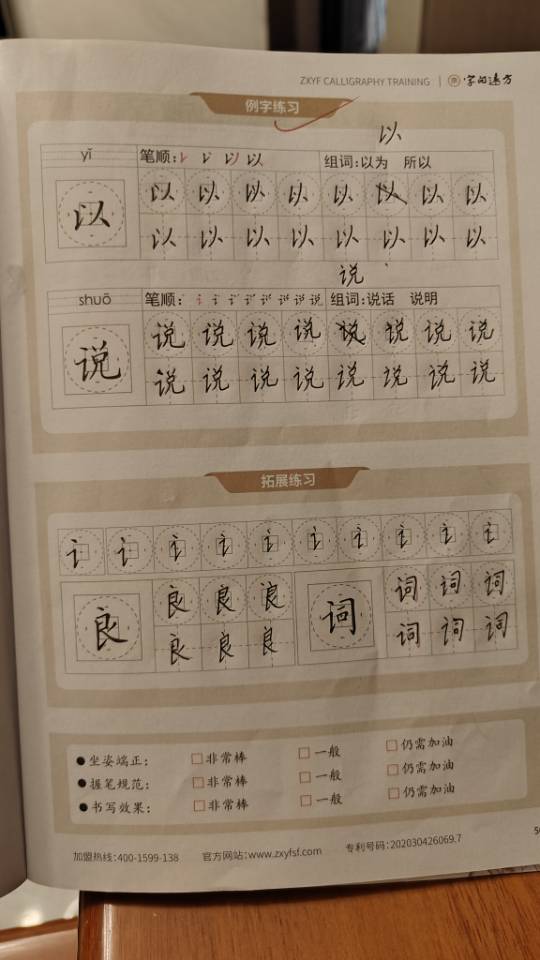 ZXYF CALLIGRAPHY TRAINING | 字的远方
例字练习
以
yǐ 笔顺: 组词:以为 所以
以 以 以 以 以 以 以 以 以
以 以 以 以 以 以 以 以
说
shuō 笔顺: 组词:说话 说明
说 说 说 说 说 说 说 说 说
说 说 说 说 说 说 说 说
拓展练习
讠 讠 讠 讠 讠 讠 讠 讠 讠 讠
良 良 良 良 词 词 词 词
良 良 良 词 词 词
●坐姿端正: □非常棒 □一般 □仍需加油
●握笔规范: □非常棒 □一般 □仍需加油
●书写效果: □非常棒 □一般 □仍需加油
加盟热线:400-1599-138 官方网站:www.zxyfsf.com 专利号码:202030426069.7